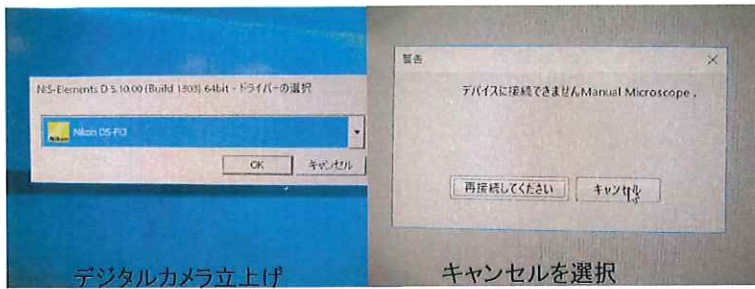 NIS-Elements D 5.10.00 (Build 1303) 64bit - ドライバーの選択
Nikon
Nikon DS-Fi3
OK
キャンセル
デジタルカメラ立上げ
警告
デバイスに接続できませんManual Microscope .
再接続してください
キャンセル
キャンセルを選択